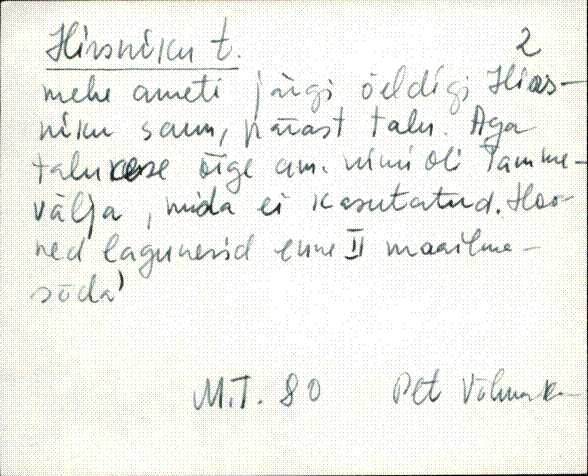 Hirsniku t. 2
mehe ameti järgi öeldigi Hirs-
niku saun, pärast talu. Aga
talukese õige am. nimi oli Tamme-
välja, mida ei kasutatud. Hoo-
ned lagunesid enne II maailma-
sõda)
M.T. 80 Plt